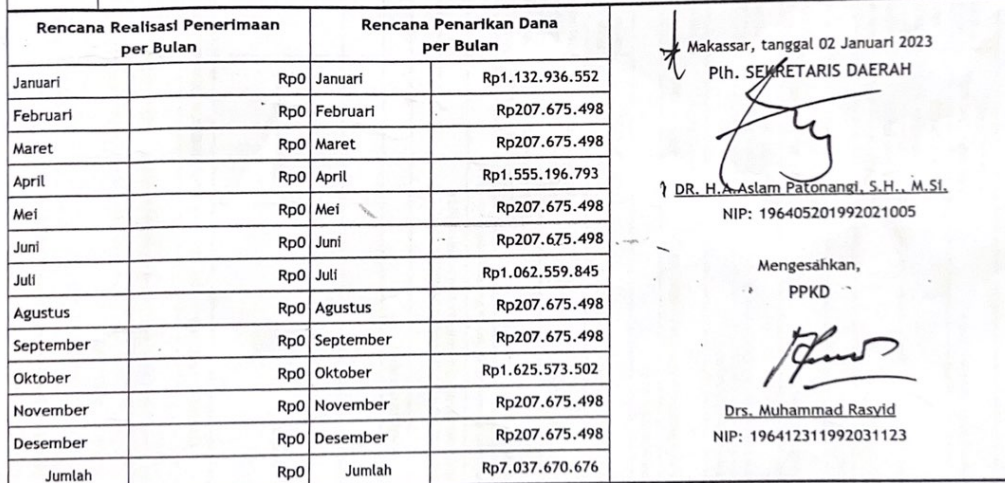 Rencana Realisasi Penerimaan
per Bulan
Rencana Penarikan Dana
per Bulan
Januari Rp0 Januari Rp1.132.936.552
Februari Rp0 Februari Rp207.675.498
Maret Rp0 Maret Rp207.675.498
April Rp0 April Rp1.555.196.793
Mei Rp0 Mei Rp207.675.498
Juni Rp0 Juni Rp207.675.498
Juli Rp0 Juli Rp1.062.559.845
Agustus Rp0 Agustus Rp207.675.498
September Rp0 September Rp207.675.498
Oktober Rp0 Oktober Rp1.625.573.502
November Rp0 November Rp207.675.498
Desember Rp0 Desember Rp207.675.498
Jumlah Rp0 Jumlah Rp7.037.670.676
Makassar, tanggal 02 Januari 2023
Plh. SEKRETARIS DAERAH
DR. H.A.Aslam Patonangi, S.H., M.Si.
NIP: 196405201992021005
Mengesahkan,
PPKD
Drs. Muhammad Rasyid
NIP: 196412311992031123